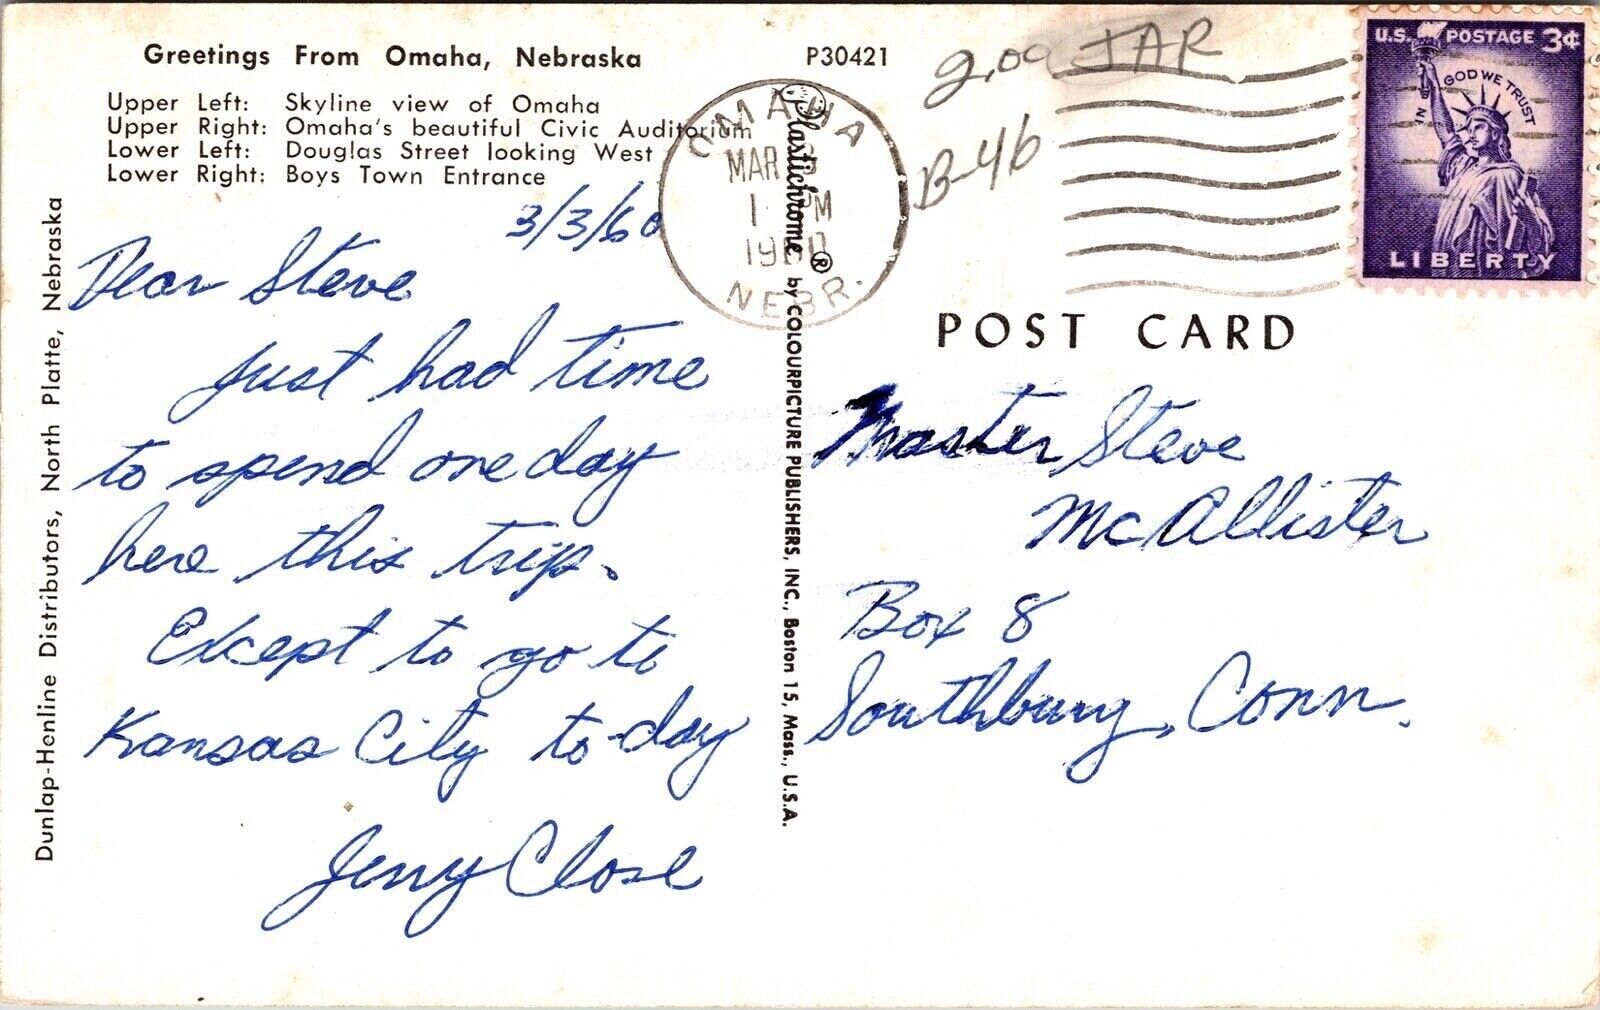 Greetings From Omaha, Nebraska
P30421
Upper Left: Skyline view of Omaha
Upper Right: Omaha's beautiful Civic Auditorium
Lower Left: Douglas Street looking West
Lower Right: Boys Town Entrance
Dunlap-Henline Distributors, North Platte, Nebraska
3/3/60
Dear Steve
Just had time
to spend one day
here this trip.
Except to go to
Kansas City to-day
Jerry Close
OMAHA
MAR
1 PM
NEBR.
Plastichrome® by COLOURPICTURE PUBLISHERS, INC., Boston 15, Mass., U.S.A.
2.00 JAR
B-46
U.S. POSTAGE 3¢
IN GOD WE TRUST
LIBERTY
POST CARD
Master Steve
McAllister
Box 8
Southbury, Conn.